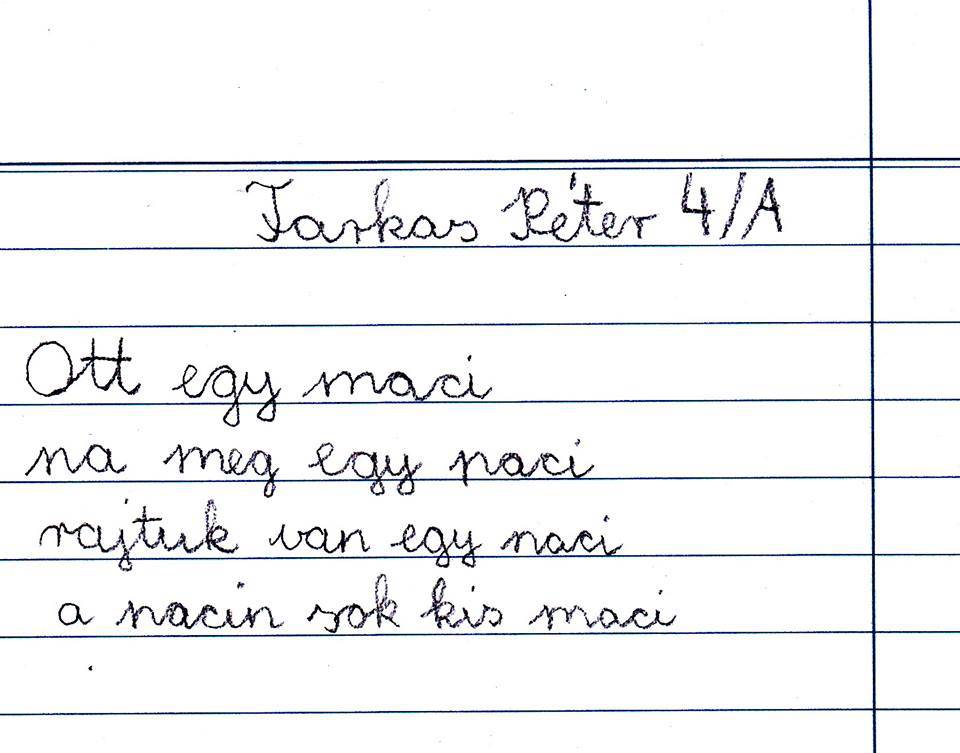 Farkas Péter 4/A
Ott egy maci
na meg egy paci
rajtuk van egy naci
a nacin sok kis maci